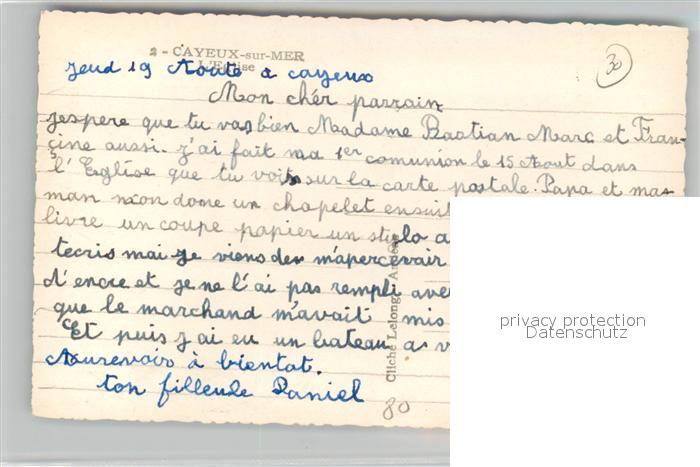 2 - CAYEUX-sur-MER
L'Eglise
jeud 19 Aoute a cayeux
30
Mon chér parrain
jespere que tu vas bien Madame Bastian Marc et Fran-
çine aussi. j'ai fait ma 1er comunion le 15 Aout dans
l'Eglise que tu vois sur la carte postale. Papa et ma
man mon done un chapelet ensuit
livre un coupe papier un stylo a
tecris mai je viens den m'apercevoir
d'encre et je ne l'ai pas rempli avec
que le marchand m'avait mis
Et puis j'ai eu un bateau a v
Aurevoir à bientat.
ton filleule Daniel
Cliché Lelong
80
privacy protection
Datenschutz